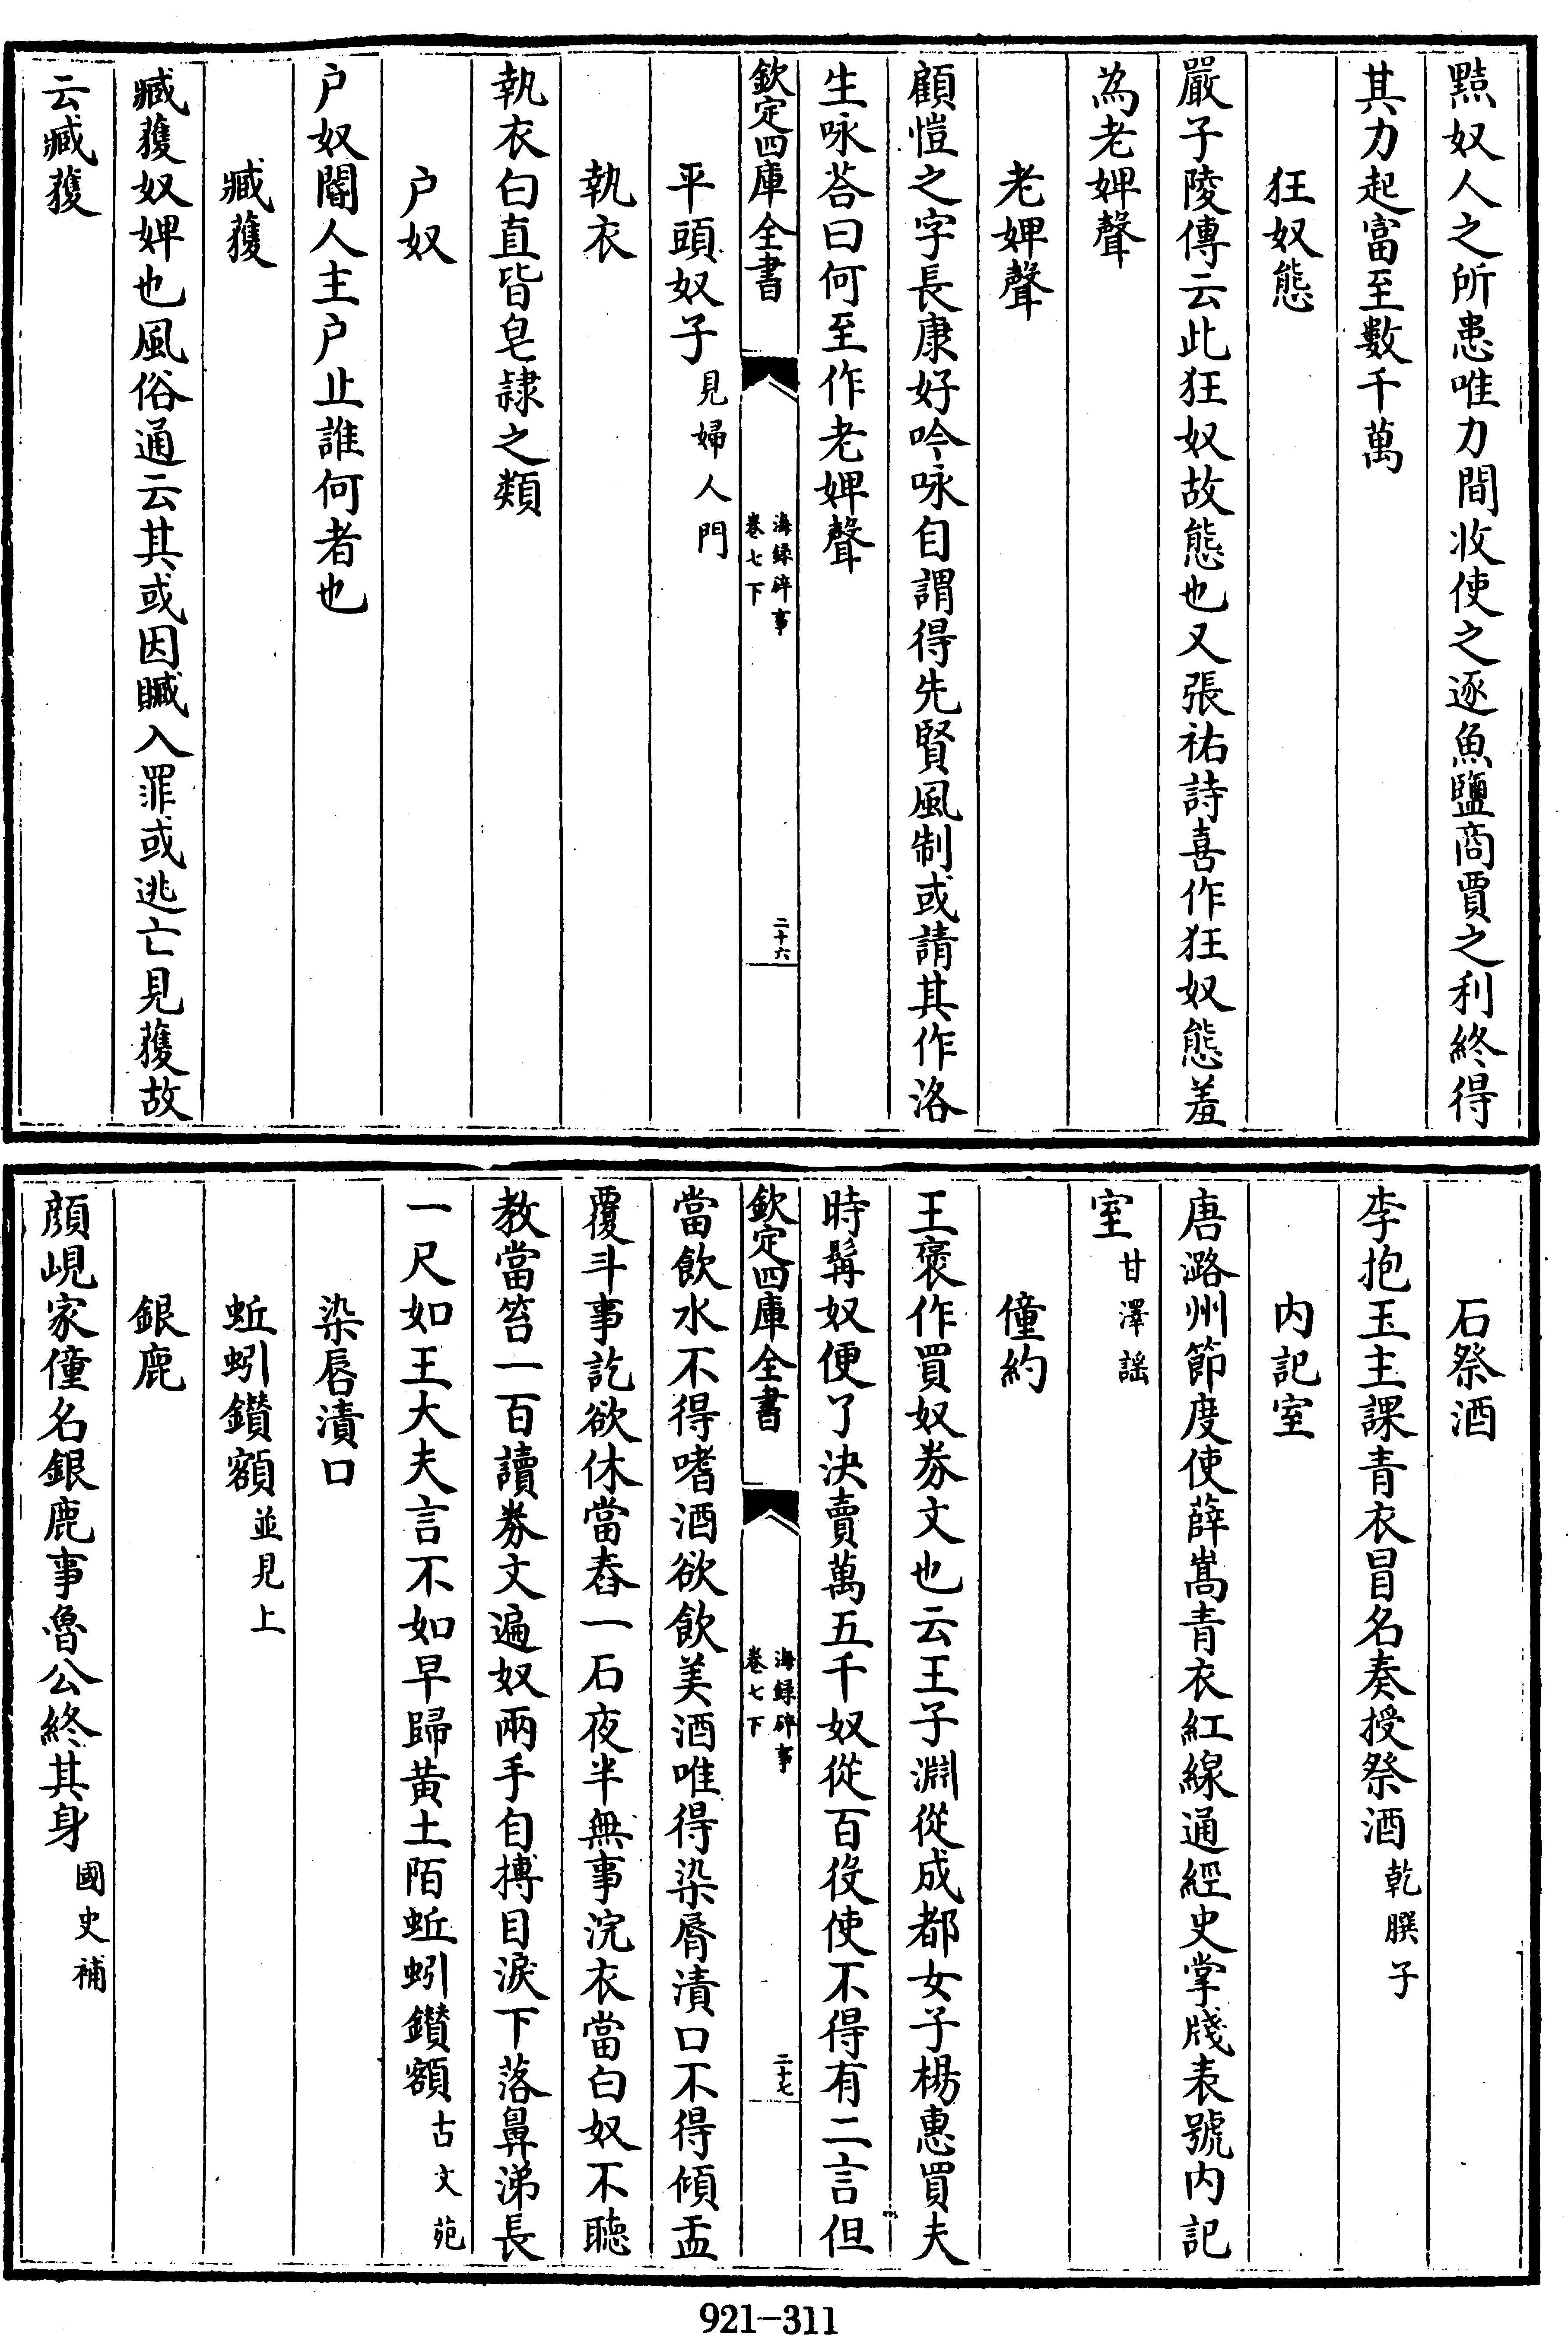 黠奴人之所患唯力間收使之逐魚鹽商賈之利終得
其力起富至數千萬
狂奴態
嚴子陵傳云此狂奴故態也又張祐詩喜作狂奴態羞
為老婢聲
老婢聲
顧愷之字長康好吟咏自謂得先賢風制或請其作洛
生咏荅曰何至作老婢聲
欽定四庫全書
海録碎事
卷七下
二十六
平頭奴子見婦人門
執衣
執衣白直皆皂隷之類
户奴
户奴閽人主户止誰何者也
臧獲
臧獲奴婢也風俗通云其或因贓入罪或逃亡見獲故
云臧獲
石祭酒
李抱玉主課青衣冒名奏授祭酒乾𦠆子
内記室
唐潞州節度使薛嵩青衣紅線通經史掌牋表號内記
室甘澤謡
僮約
王褒作買奴券文也云王子淵從成都女子楊惠買夫
時髯奴便了決賣萬五千奴從百役使不得有二言但
欽定四庫全書
海録碎事
卷七下
二十七
當飲水不得嗜酒欲飲美酒唯得染脣漬口不得傾盂
覆斗事訖欲休當舂一石夜半無事浣衣當白奴不聽
教當笞一百讀券文遍奴兩手自搏目淚下落鼻涕長
一尺如王大夫言不如早歸黄土陌蚯蚓鑚額古文苑
染唇漬口
蚯蚓鑚額並見上
銀鹿
顔峴家僮名銀鹿事魯公終其身國史補
921-311